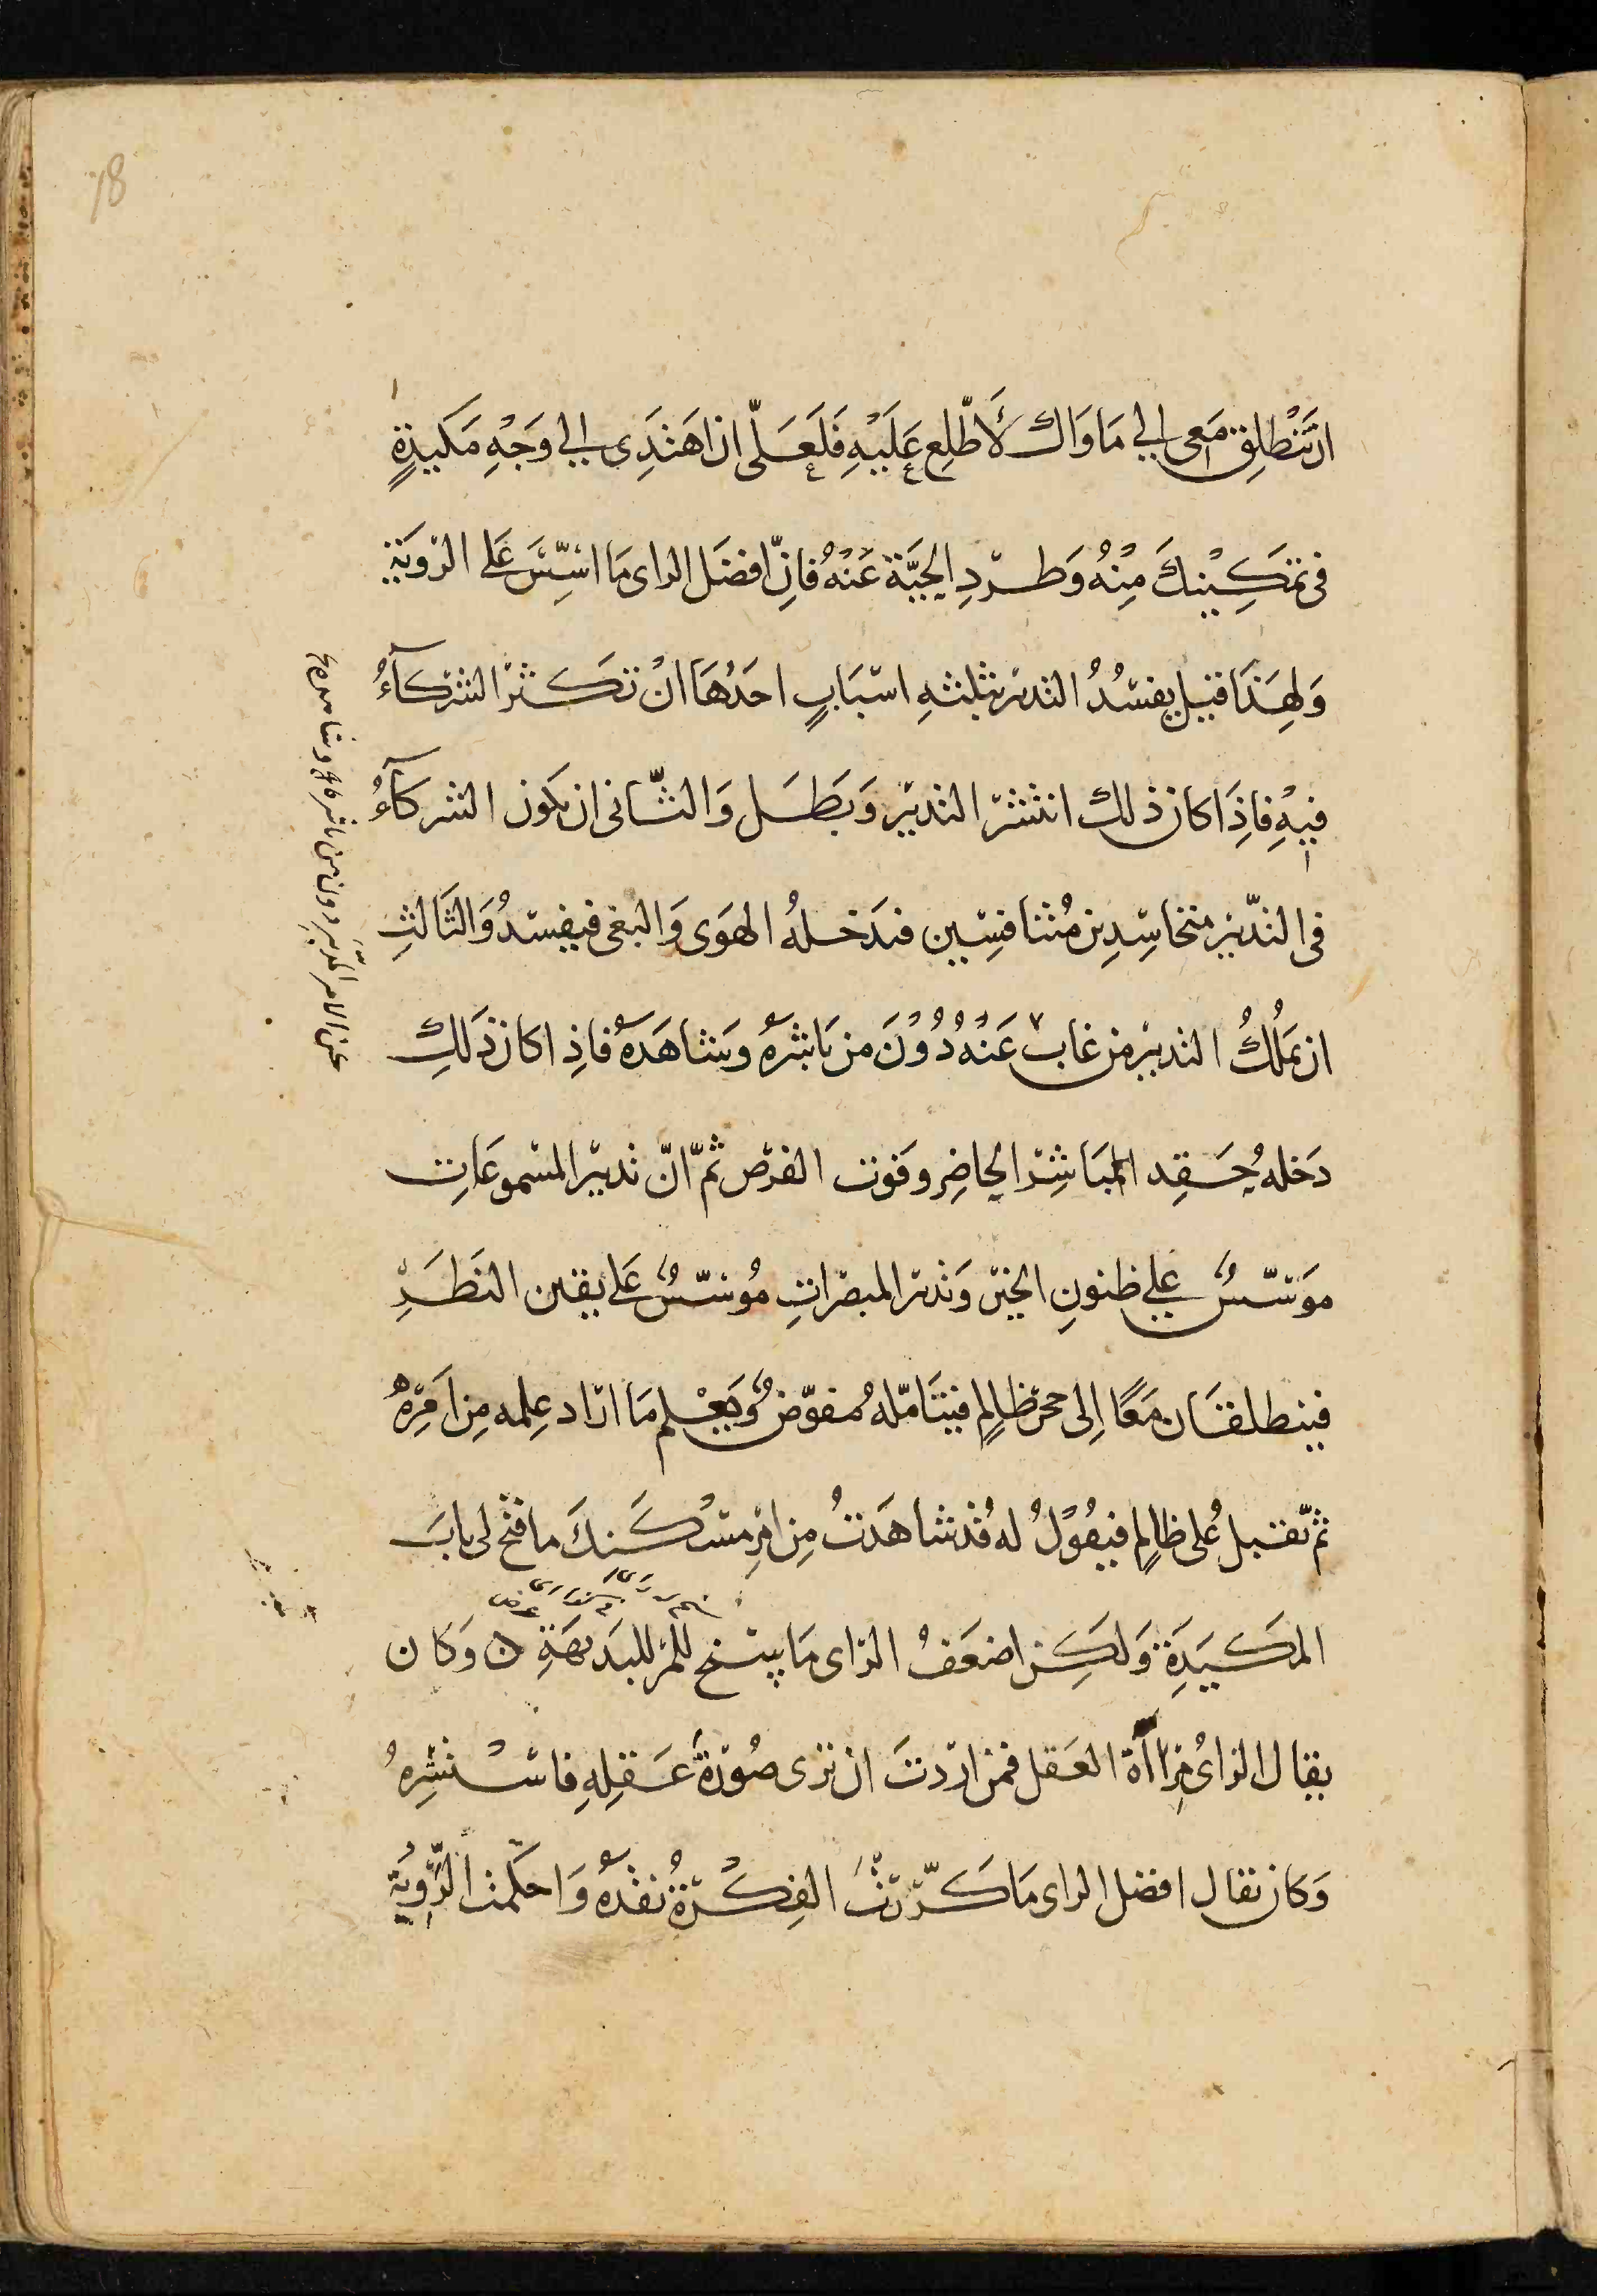 18
ان تنطلق معى الى مَاوَاك لأَطّلِع عَلَيْهِ فَلَعَلّى ان اهتَدِى الى وَجْهِ مَكيدَةٍ
فى تمكِينِكَ مِنْهُ وَطردِ الحيَّة عَنْهُ فانِّ افضَل الراى مَا اسِّسَ عَلى الروية
وَلهِذَا قيل يفسُدُ التدبير بثلثهِ اسْبَابٍ احَدُهَا انْ تكثر الشركآءُ
فيهِ فاذِا كان ذلك انتشر التدبير وَبَطَل وَالثّانى ان يكون الشركآءُ
فى التدّبير متحاسِدِين مُتنافِسِين فيَدخلهُ الهوَى وَالبغى فيفسدُ وَالثَالثِ
ان يَملُكُ التدبير من غاب عَنهُ دُوُنَ من بَاشرهُ وشاهَدهُ فاذِا كان ذَلكِ
دَخلهُ حِقد المبَاشِر الحاضِر وفوت الفرص ثمّ انّ تدبير المسموعَاتِ
مؤَسّسٌ على ظنونِ الخبر وَتدبير المبصَراتِ مُوسّسٌ عَلى يقين النظَرِ
فينطلقَان مَعًا اِلى جحر ظالِمٍ فيتَأمّلهُ مفوّضٌ وَيَعْلم مَا ارَاد عِلمه مِن امَرِه
ثمّ تقبل عُلى ظالِمٍ فيقوُلُ له قُد شاهَدتُ مِن امْرِ مسْكَنكَ ما فتح لى بابَ
المكيَدَةِ وَلكِن اضعَفُ الرَاى مَا يسنح للمرَ للبَديهَةِ ن وَكان
يقال الراىُ مِرْاآة العَقل فمن اردتَ ان ترى صُورَةَ عَقلِهِ فاسْتشِرهُ
وَكان يقال افضل الراى مَا كَرّرتْ الفِكْرَةُ نقدهُ وَاحكمت الرَّوِيَّة